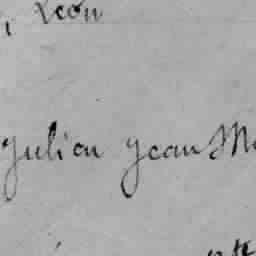 , Léon
Julien Jean M